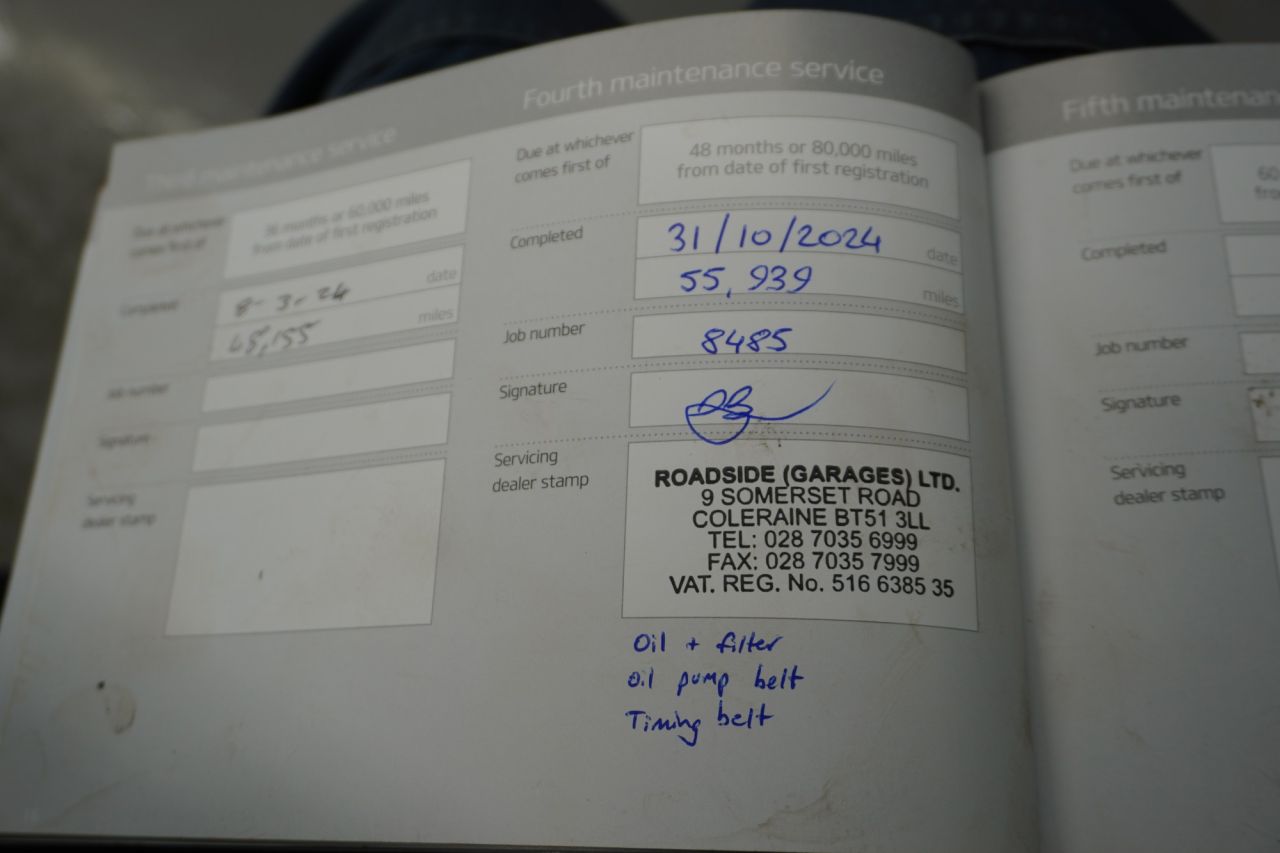 Third maintenance service
Due at whichever
comes first of
36 months or 60,000 miles
from date of first registration
Completed
8-3-24
date
miles
Job number
Signature
Servicing
dealer stamp
Fourth maintenance service
Due at whichever
comes first of
48 months or 80,000 miles
from date of first registration
Completed
31/10/2024
date
55,939
miles
Job number
8485
Signature
Servicing
dealer stamp
ROADSIDE (GARAGES) LTD.
9 SOMERSET ROAD
COLERAINE BT51 3LL
TEL: 028 7035 6999
FAX: 028 7035 7999
VAT. REG. No. 516 6385 35
Oil + filter
Oil pump belt
Timing belt
Fifth
Due at whichever
comes first of
60
Completed
Job number
Signature
Servicing
dealer stamp